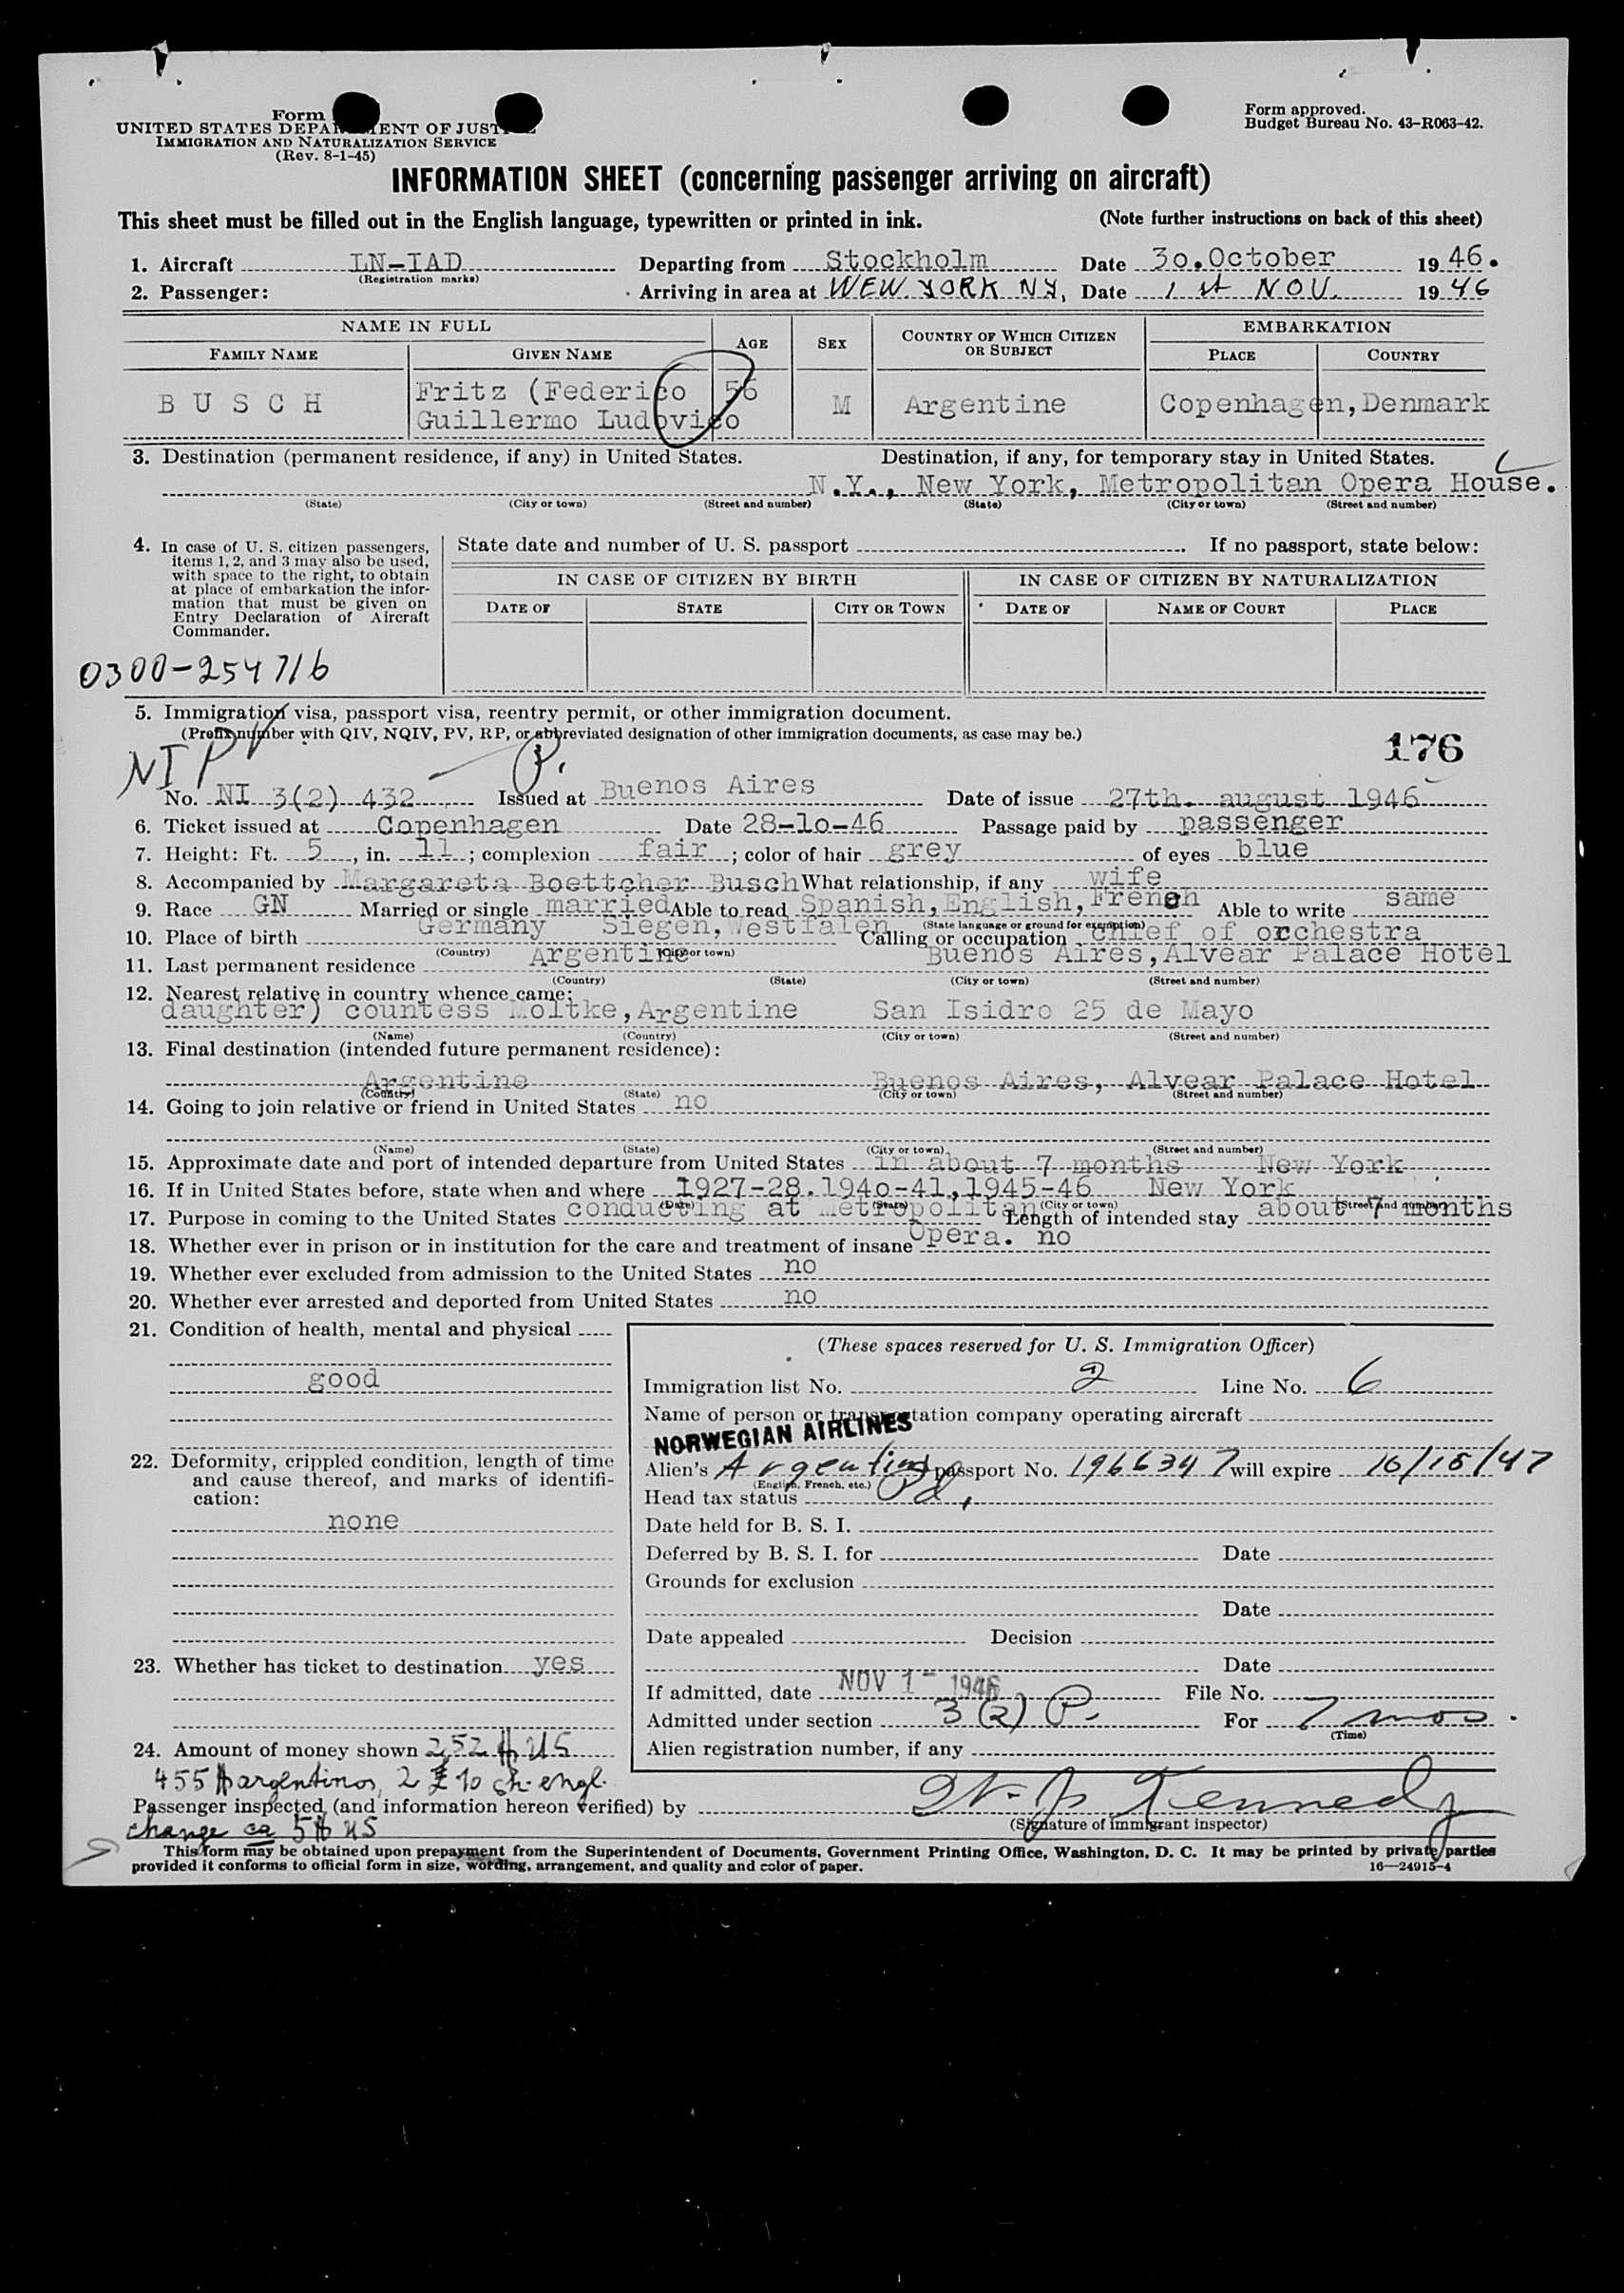 Form
UNITED STATES DEPARTMENT OF JUSTICE
IMMIGRATION AND NATURALIZATION SERVICE
(Rev. 8-1-45)
Form approved.
Budget Bureau No. 43-R063-42.
INFORMATION SHEET (concerning passenger arriving on aircraft)
This sheet must be filled out in the English language, typewritten or printed in ink. (Note further instructions on back of this sheet)
1. Aircraft LN-IAD Departing from Stockholm Date 30.October 1946.
(Registration marks)
2. Passenger: Arriving in area at WEW YORK NY, Date 1 st NOV. 1946
NAME IN FULL AGE SEX COUNTRY OF WHICH CITIZEN OR SUBJECT EMBARKATION
FAMILY NAME GIVEN NAME PLACE COUNTRY
B U S C H Fritz (Federico 56 M Argentine Copenhagen, Denmark
Guillermo Ludovico
3. Destination (permanent residence, if any) in United States. Destination, if any, for temporary stay in United States.
N.Y., New York, Metropolitan Opera House.
(State) (City or town) (Street and number) (State) (City or town) (Street and number)
4. In case of U. S. citizen passengers, items 1, 2, and 3 may also be used, with space to the right, to obtain at place of embarkation the information that must be given on Entry Declaration of Aircraft Commander.
State date and number of U. S. passport If no passport, state below:
IN CASE OF CITIZEN BY BIRTH IN CASE OF CITIZEN BY NATURALIZATION
DATE OF STATE CITY OR TOWN DATE OF NAME OF COURT PLACE
0300-254716
5. Immigration visa, passport visa, reentry permit, or other immigration document.
(Prefix number with QIV, NQIV, PV, RP, or abbreviated designation of other immigration documents, as case may be.)
176
NI PV P.
No. NI 3(2) 432 Issued at Buenos Aires Date of issue 27th. august 1946
6. Ticket issued at Copenhagen Date 28-10-46 Passage paid by passenger
7. Height: Ft. 5, in. 11; complexion fair; color of hair grey of eyes blue
8. Accompanied by Margareta Boettcher Busch What relationship, if any wife
9. Race GN Married or single married Able to read Spanish, English, French Able to write same
(State language or ground for exemption)
10. Place of birth Germany Siegen, Westfalen Calling or occupation chief of orchestra
(Country) (City or town)
11. Last permanent residence Argentine Buenos Aires, Alvear Palace Hotel
(Country) (State) (City or town) (Street and number)
12. Nearest relative in country whence came:
daughter) countess Moltke, Argentine San Isidro 25 de Mayo
(Name) (Country) (City or town) (Street and number)
13. Final destination (intended future permanent residence):
Argentine Buenos Aires, Alvear Palace Hotel
(Country) (State) (City or town) (Street and number)
14. Going to join relative or friend in United States no
(Name) (State) (City or town) (Street and number)
15. Approximate date and port of intended departure from United States in about 7 months New York
16. If in United States before, state when and where 1927-28, 1940-41, 1945-46 New York
(Date) (State) (City or town) (Street and number)
17. Purpose in coming to the United States conducting at Metropolitan Length of intended stay about 7 months
Opera.
18. Whether ever in prison or in institution for the care and treatment of insane no
19. Whether ever excluded from admission to the United States no
20. Whether ever arrested and deported from United States no
21. Condition of health, mental and physical
good
22. Deformity, crippled condition, length of time and cause thereof, and marks of identification:
none
23. Whether has ticket to destination yes
24. Amount of money shown 252 $ US
455 $ argentinos, 2 £ 10 sh. engl.
change ca 5 $ US
(These spaces reserved for U. S. Immigration Officer)
Immigration list No. 2 Line No. 6
Name of person or transportation company operating aircraft
NORWEGIAN AIRLINES
Alien's Argentine passport No. 1966347 will expire 10/15/47
(English, French, etc.)
Head tax status Pd.
Date held for B. S. I.
Deferred by B. S. I. for Date
Grounds for exclusion
Date
Date appealed Decision
Date
If admitted, date NOV 1 - 1946 File No.
Admitted under section 3 (2) P. For 7 mos.
(Time)
Alien registration number, if any
Passenger inspected (and information hereon verified) by Kennedy
(Signature of immigrant inspector)
This form may be obtained upon prepayment from the Superintendent of Documents, Government Printing Office, Washington, D. C. It may be printed by private parties
provided it conforms to official form in size, wording, arrangement, and quality and color of paper. 16—24915-4